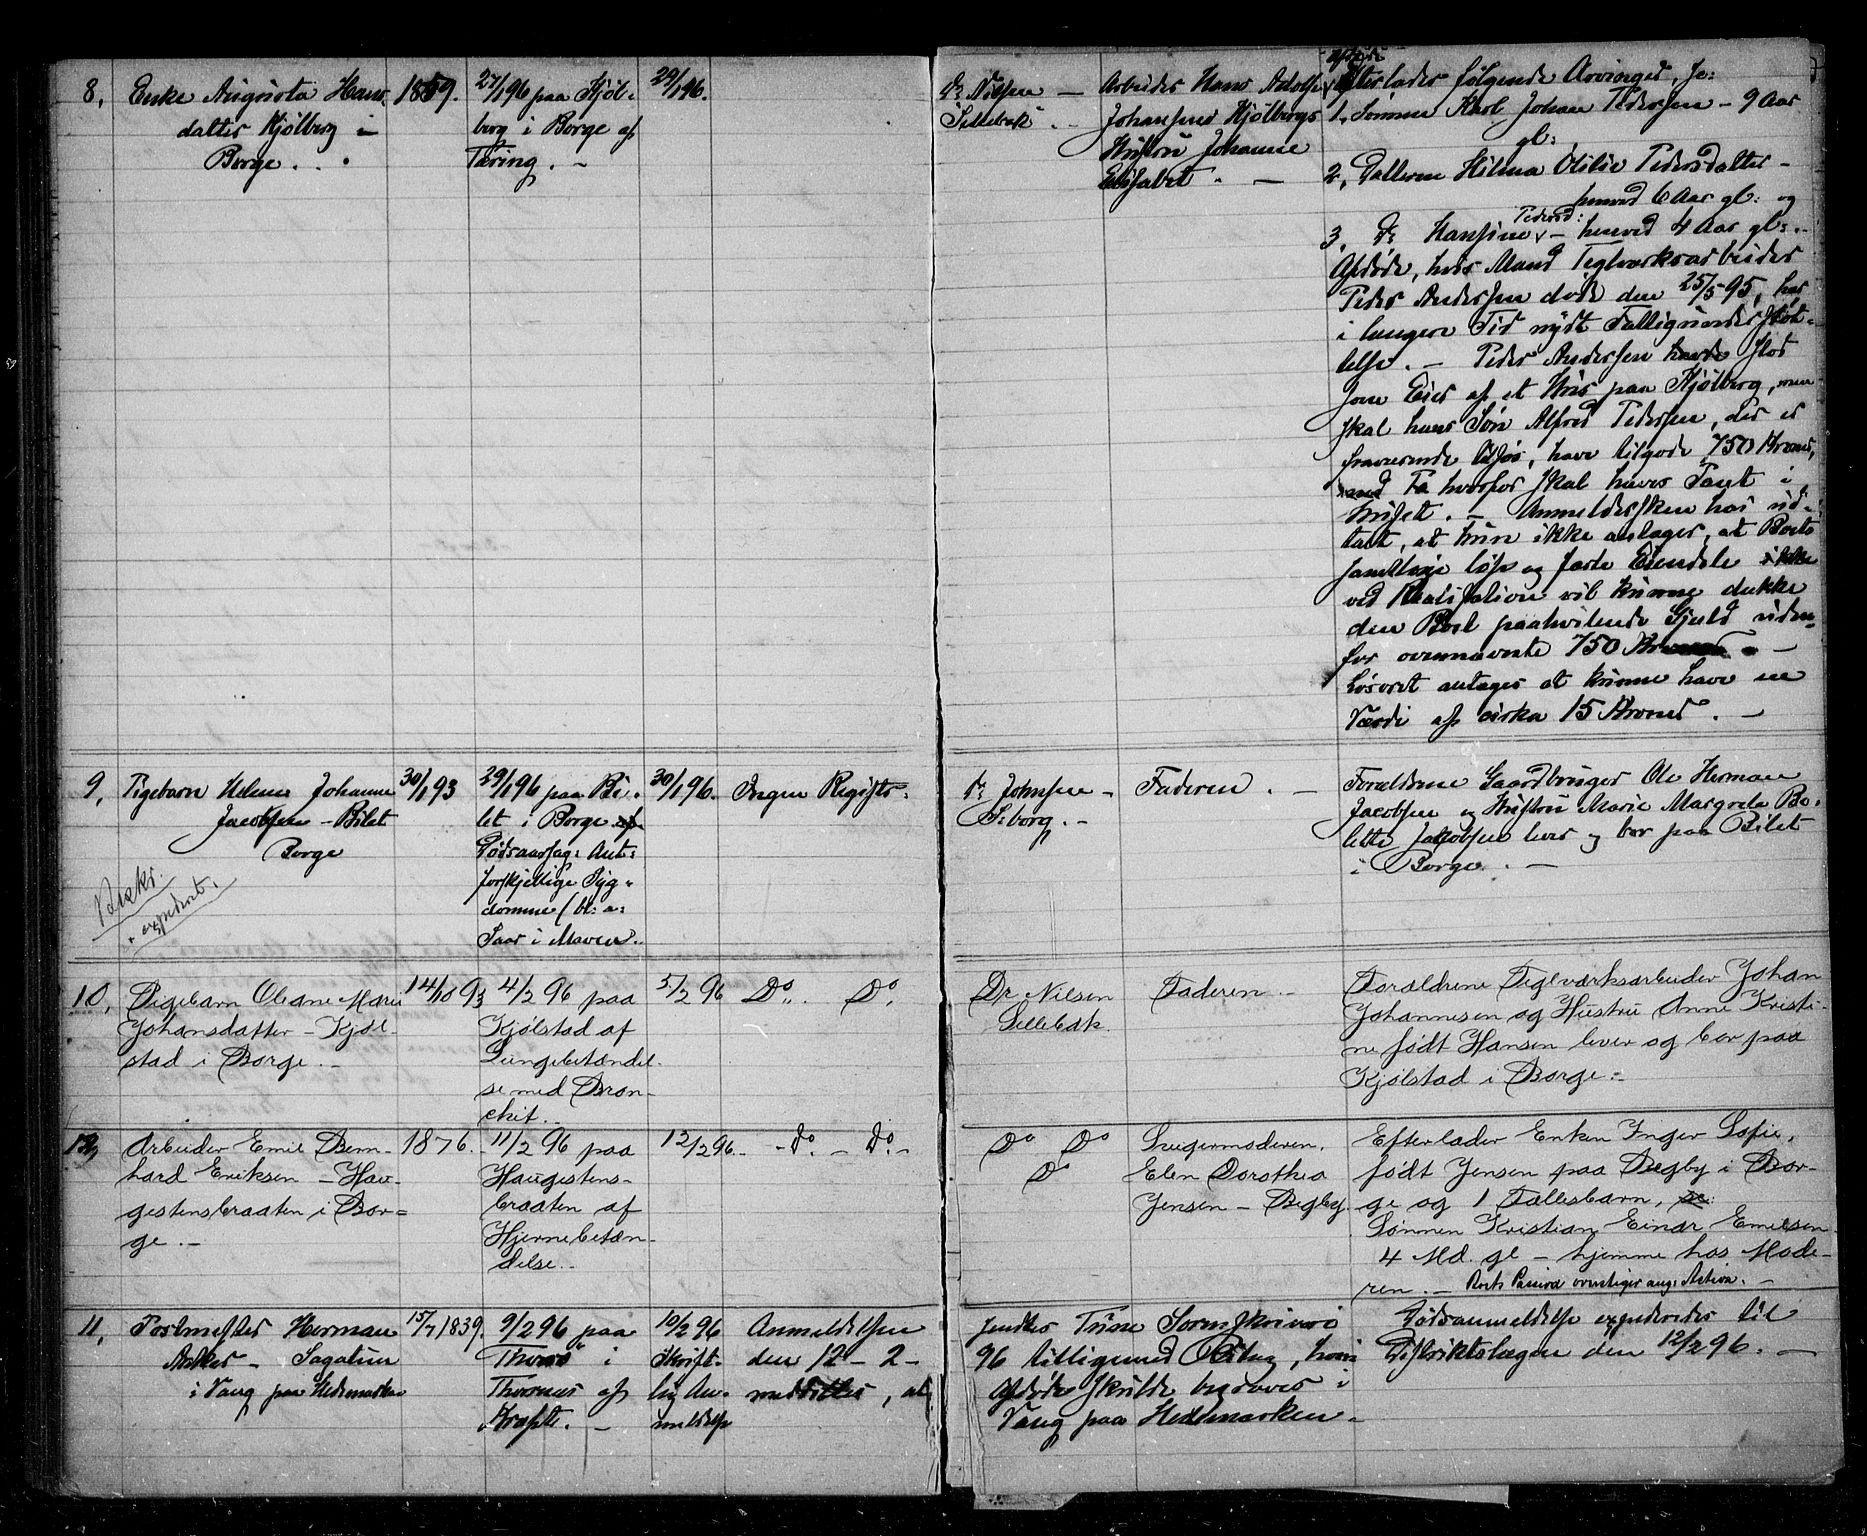 8, Enke Augusta Hans-
datter Kjølberg i
Borge.
1859.
27/1 96 paa Kjøl-
berg i Borge af
Tæring. —
29/1 96.
Dr Nilsen —
Sellebak. —
Arbeider Hans Adolf
Johansens Kjølbergs
Hustru Johanne
Elisabet. —
Afdøde
efterlader følgende Arvinger, se:
1, Sønnen Karl Johan Pedersen — 9 Aar
gl:
2, Datteren Hilma Otilie Pedersdatter —
henved 6 Aar gl: og
Pedersd:
3, Do Hansine — henved 4 Aar gl: —
Afdøde, hvis Mand Teglværksarbeider
Peder Andersen døde den 25/5 95, har
i længere Tid nydt Fattigunderstøt-
telse. — Peder Andersen havde staaet
som Eier af et Hus paa Kjølberg, men
skal hans Søn Alfred Pedersen, der er
fraværende tilsøs, have tilgode 750 Kroner,
hvorfor skal haves Pant i
Huset. — Anmeldersken har ud-
talt, at hun ikke antager, at Boets
samtlige løse og faste Eiendele ikke
ved Realisation vil kunne dække
den Boet paahvilende Gjæld uden-
for ovennævnte 750 Kroner —
Løsøret antages at kunne have en
Værdi af cirka 15 Kroner. —
9, Pigebarn Helene Johanne
Jacobsen — Bilet
Borge
Beskr.
expederet.
30/1 93
29/1 96 paa Bi-
let i Borge af
Dødsaarsag: Ant:
forskjellige Syg-
domme (bl: a:
Saar i Maven.
30/1 96.
Ingen Registr:
Dr Johnsen —
S:borg. —
Faderen. —
Forældrene Gaardbruger Ole Herman
Jacobsen og Hustru Marie Margrete Bo-
lette Jakobsen lever og bor paa Bilet
i Borge. —
10, Pigebarn Oleane Marie
Johansdatter — Kjøl-
stad i Borge. —
14/10 93
4/2 96 paa
Kjølstad af
Lungebetændel-
se med Bron-
chit. —
5/2 96
Do. Do.
Dr Nilsen
Sellebak.
Faderen. —
Forældrene Teglværksarbeider Johan
Johannesen og Hustru Anne Kristi-
ne født Hansen lever og bor paa
Kjølstad i Borge. —
12, Arbeider Emil Bern-
hard Eriksen — Hau-
gestensbraaten i Bor-
ge. —
1876.
11/2 96 paa
Haugestens-
braaten af
Hjernebetæn-
delse. —
12/2 96.
— Do. — Do. —
Do Do
Do
Svigermoderen.
Elen Dorothea
Jensen — Begby.
Efterlader Enken Inger Sofie,
født Jensen paa Begby i Bor-
ge og 1 Fællesbarn, se:
Sønnen Kristian Einar Emilsen
4 Md. gl — hjemme hos Mode-
ren. — Boets Passiva overstiger ang: Activa. —
11, Postmester Herman
Anker — Sagatun
i Vang paa Hedemarken
15/7 1839.
9/2 96 paa
Thorsø i
Thorsnæs af
Kræft. —
10/2 96
Skrift-
lig An-
meldelse
Anmeldelsen
den 12 — 2 —
meddeltes, at
sendtes Tune Sorenskriveri
96 tilligemed Bilag, hvori
Afdøde skulde begraves i
Vang paa Hedemarken —
Dødsanmeldelse expederedes til
Distriktslægen den 12/2 96. —